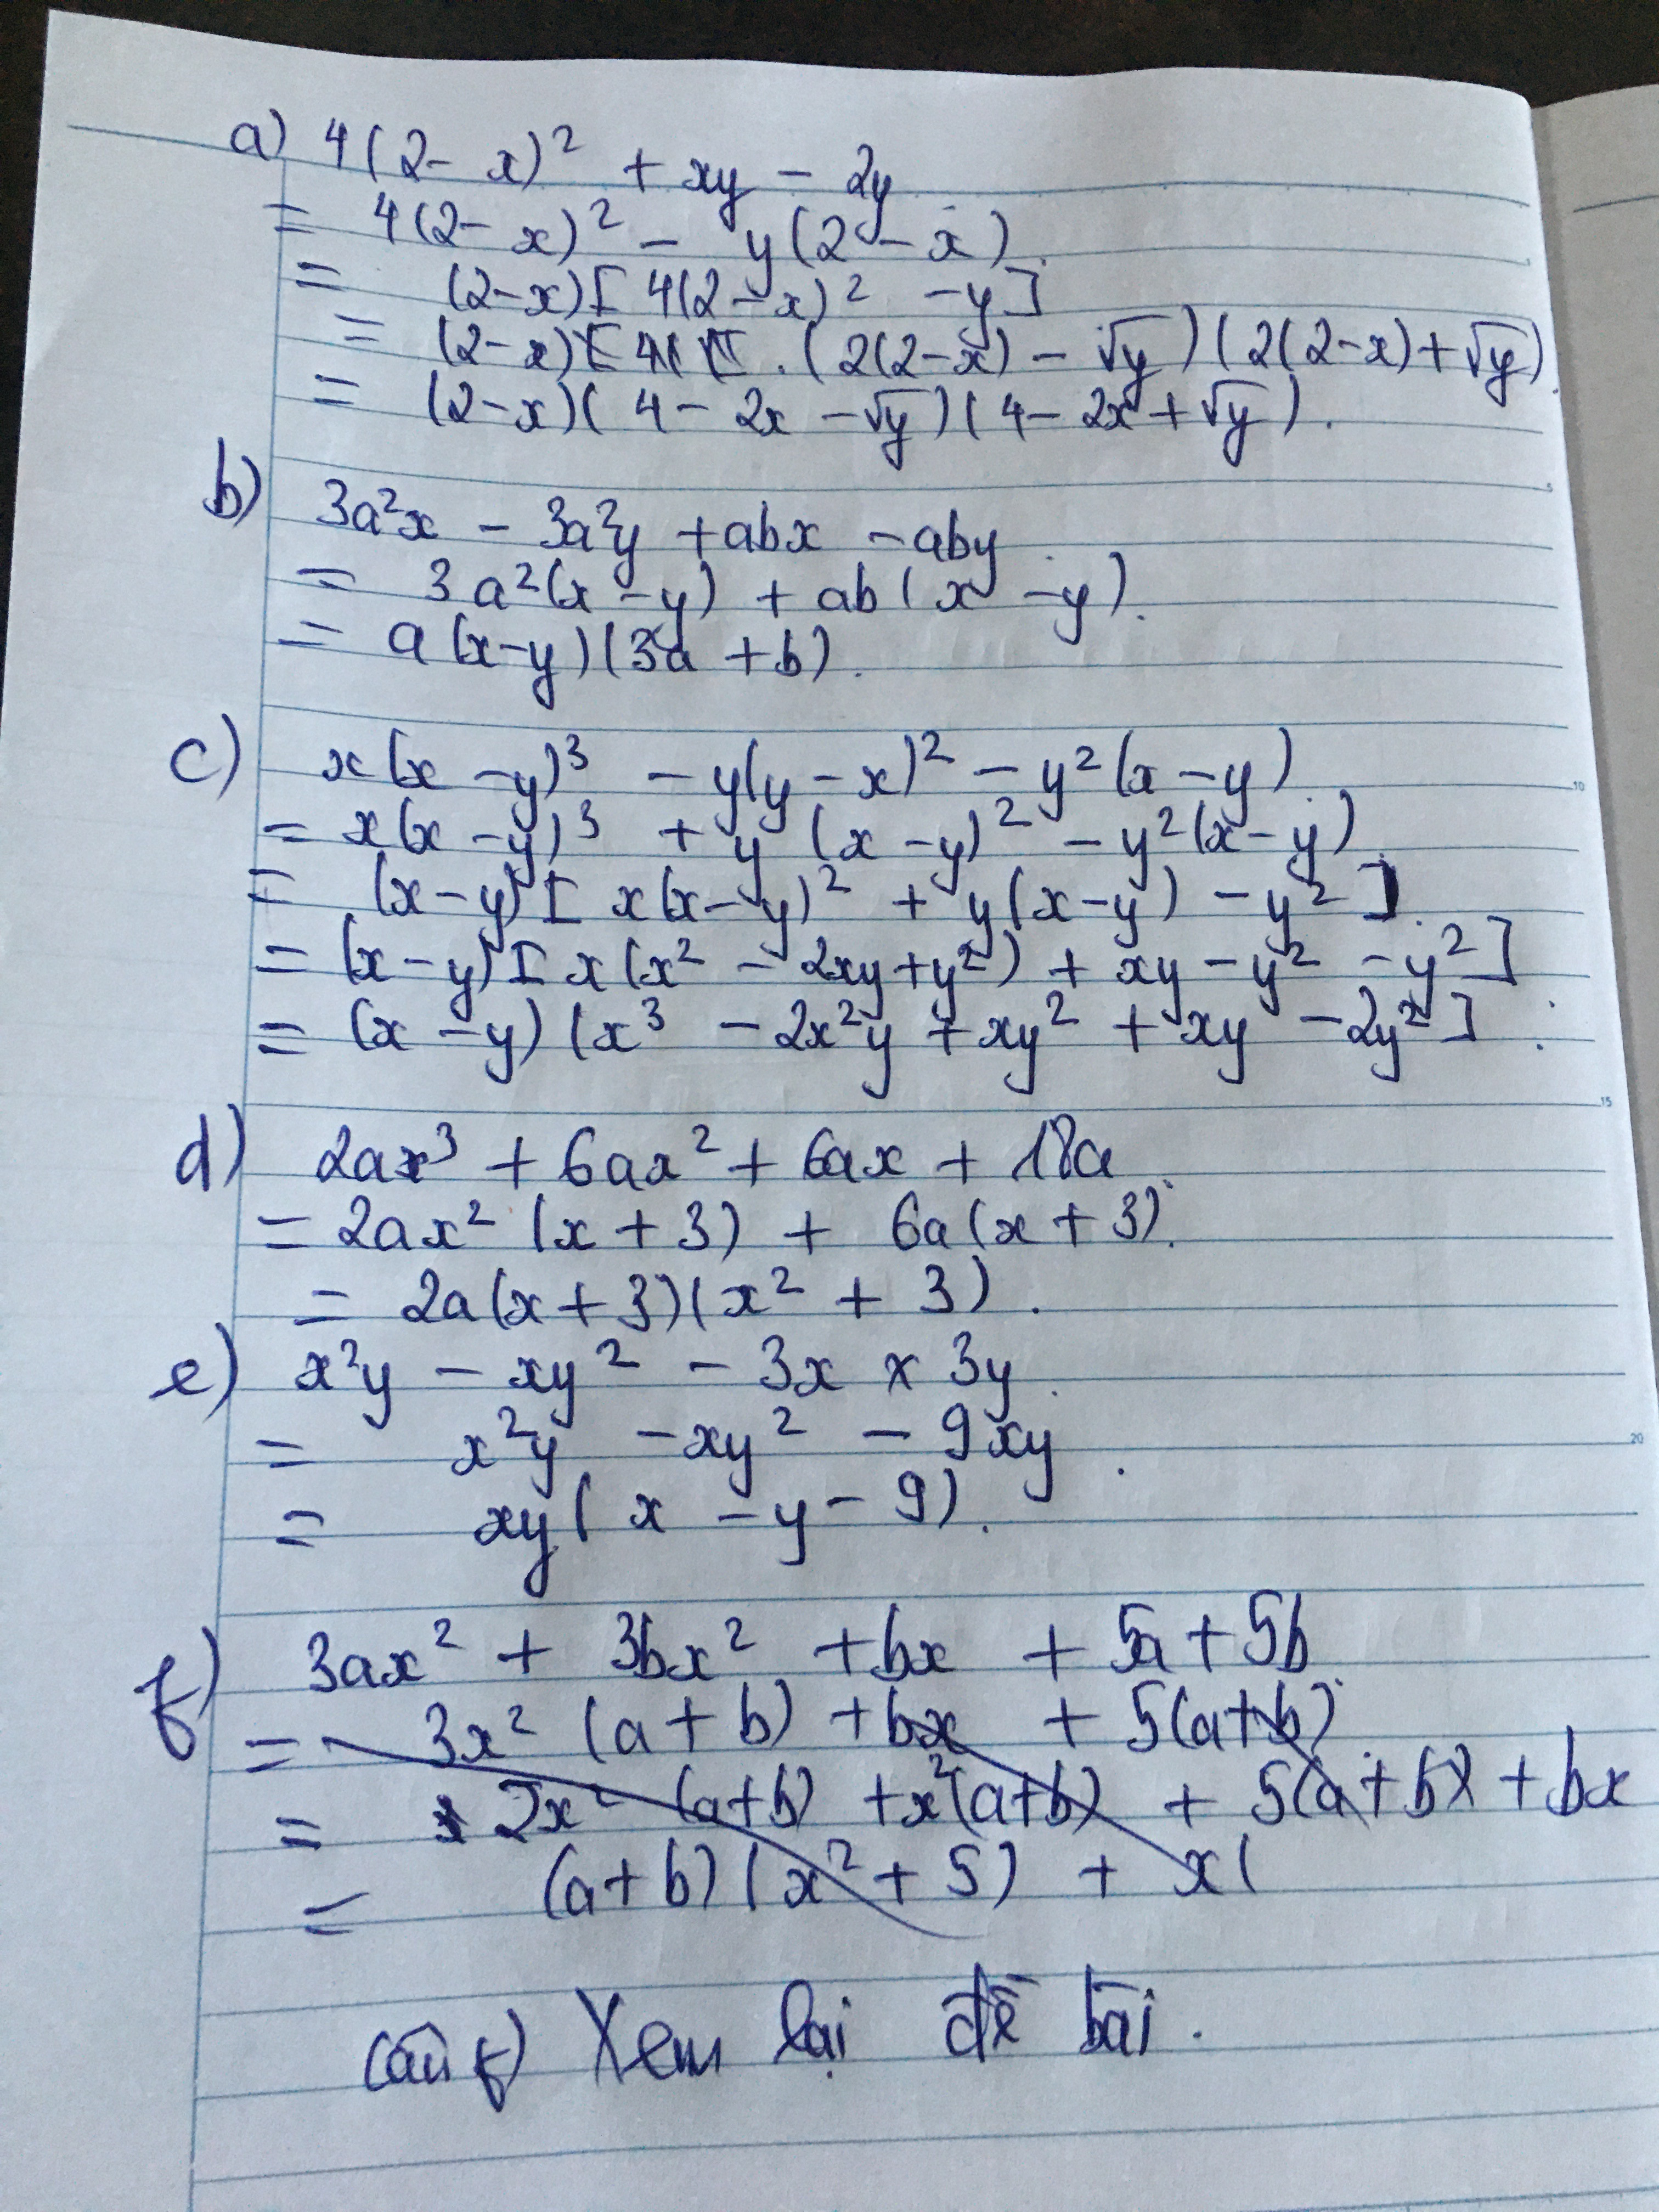 a) 4(2-x)² + xy - 2y
= 4(2-x)² - y(2-x).
= (2-x)[4(2-x)² - y]
= (2-x) . (2(2-x) - √y)(2(2-x)+√y).
= (2-x)(4-2x-√y)(4-2x+√y).
b) 3a²x - 3a²y + abx - aby.
= 3a²(x-y) + ab(x-y).
= a(x-y)(3a+b).
c) x(x-y)³ - y(y-x)² - y²(x-y).
= x(x-y)³ + y(x-y)² - y²(x-y).
= (x-y)[x(x-y)² + y(x-y) - y²].
= (x-y)[x(x² - 2xy+y²) + xy - y² - y²].
= (x-y)(x³ - 2x²y + xy² + xy - 2y²].
d) 2ax³ + 6ax² + 6ax + 18a.
= 2ax²(x+3) + 6a(x+3).
= 2a(x+3)(x²+3).
e) x²y - xy² - 3x × 3y.
= x²y - xy² - 9xy.
= xy(x-y-9).
f) 3ax² + 3bx² + bx + 5a + 5b.
= 3x²(a+b) + bx + 5(a+b).
= 2x²(a+b) + x²(a+b) + 5(a+b) + bx
= (a+b)(x²+5) + x(
Câu f) Xem lại đề bài.